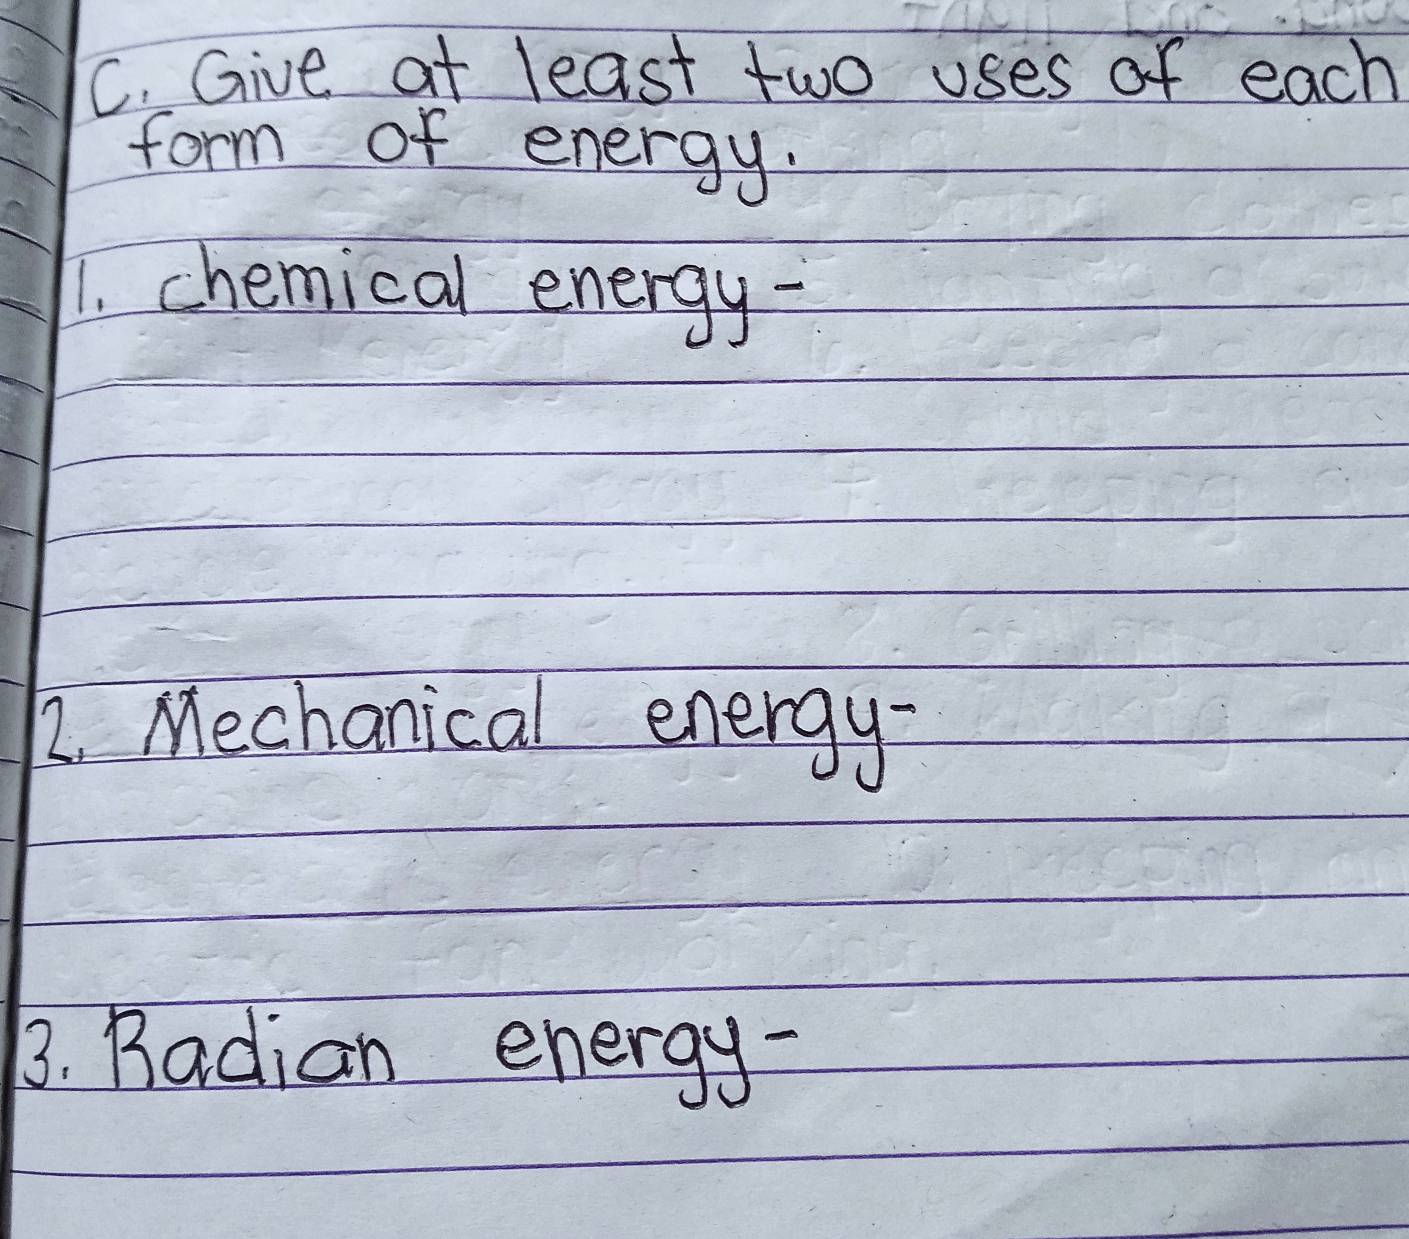 C. Give at least two uses of each
form of energy.
1. chemical energy-
2. Mechanical energy-
3. Radian energy-